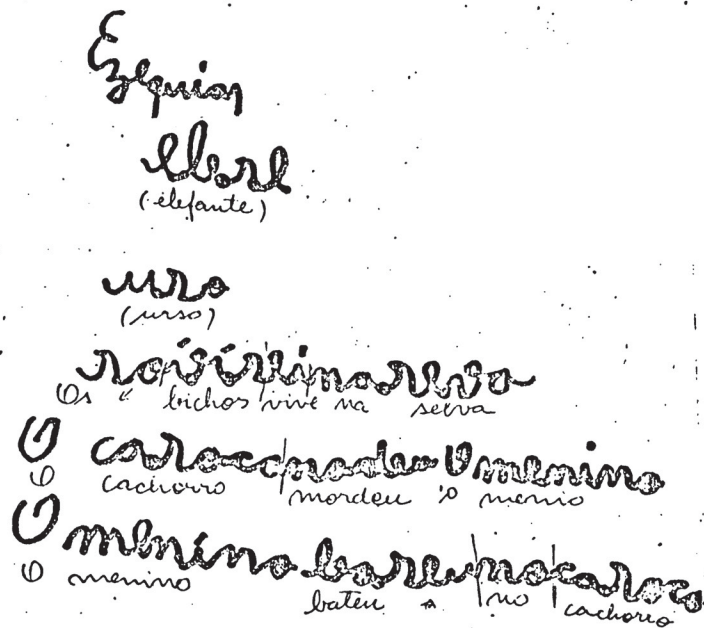 Ezequias
(elefante)
uro
(urso)
Os " bichos vive na selva
O caroconodeu O menino
O cachorro mordeu o menio
O menino bareu no caroco
O menino bateu no cachorro